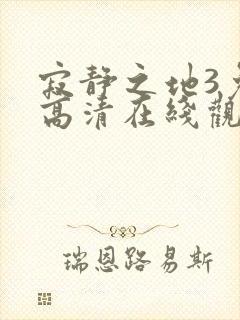 寂静之地3
高清在綫觀
瑞恩路易斯